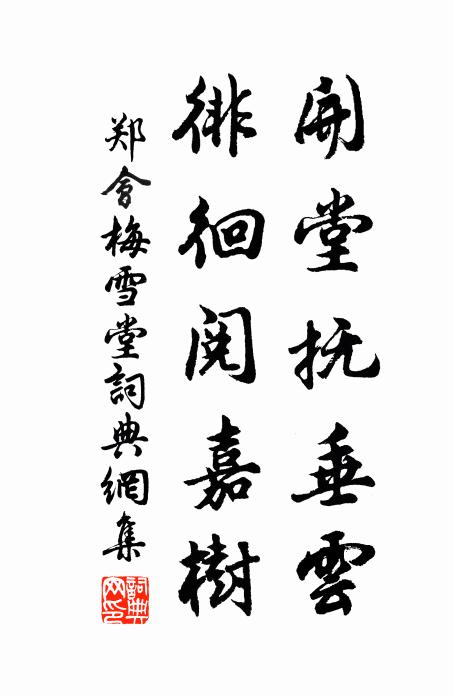 開堂抚垂雲
徘徊閱嘉樹
郑會梅雪堂詞典網集
詞典